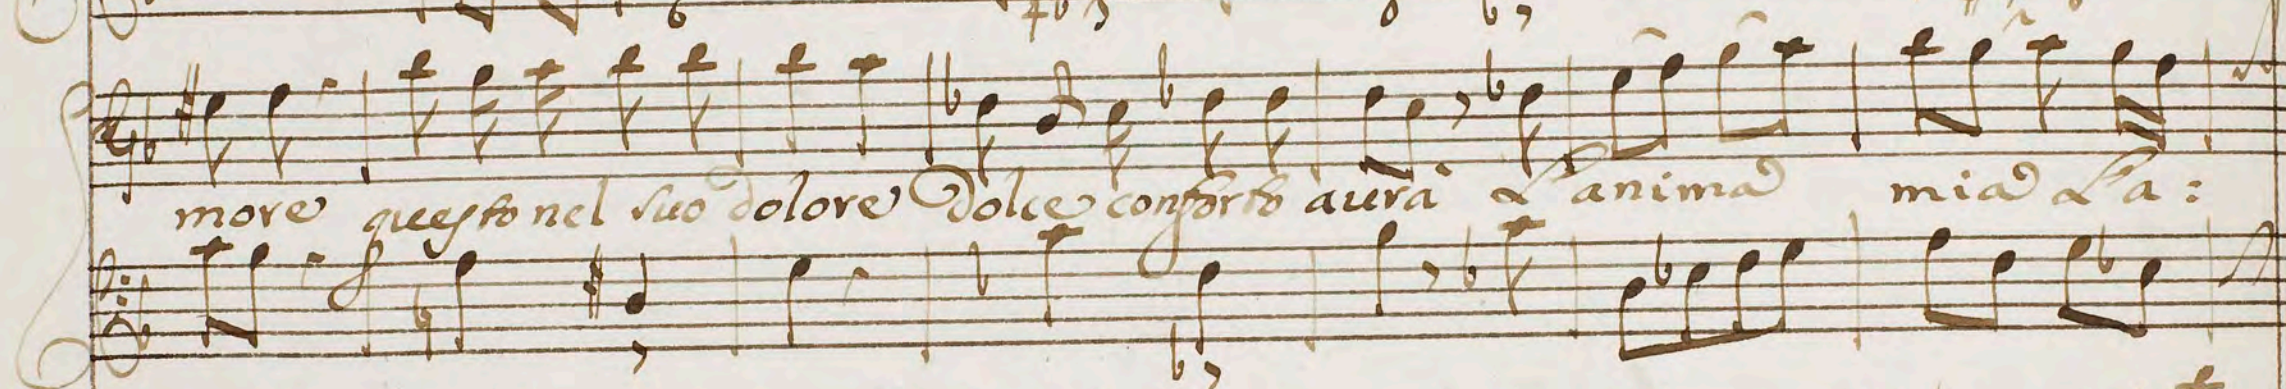 more questo nel suo dolore Dolce conforto aurà L'anima mia L'a: